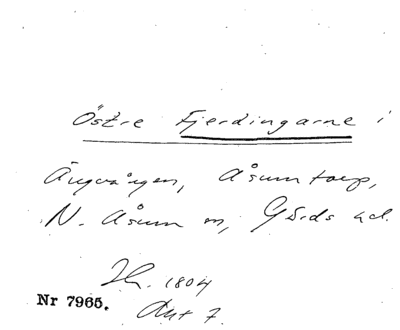 Östre Fjerdingarne i
Ängvången, Åsumtorp,
N. Åsum sn, Gärds hd.
1804
Nr 7965. Akt 7